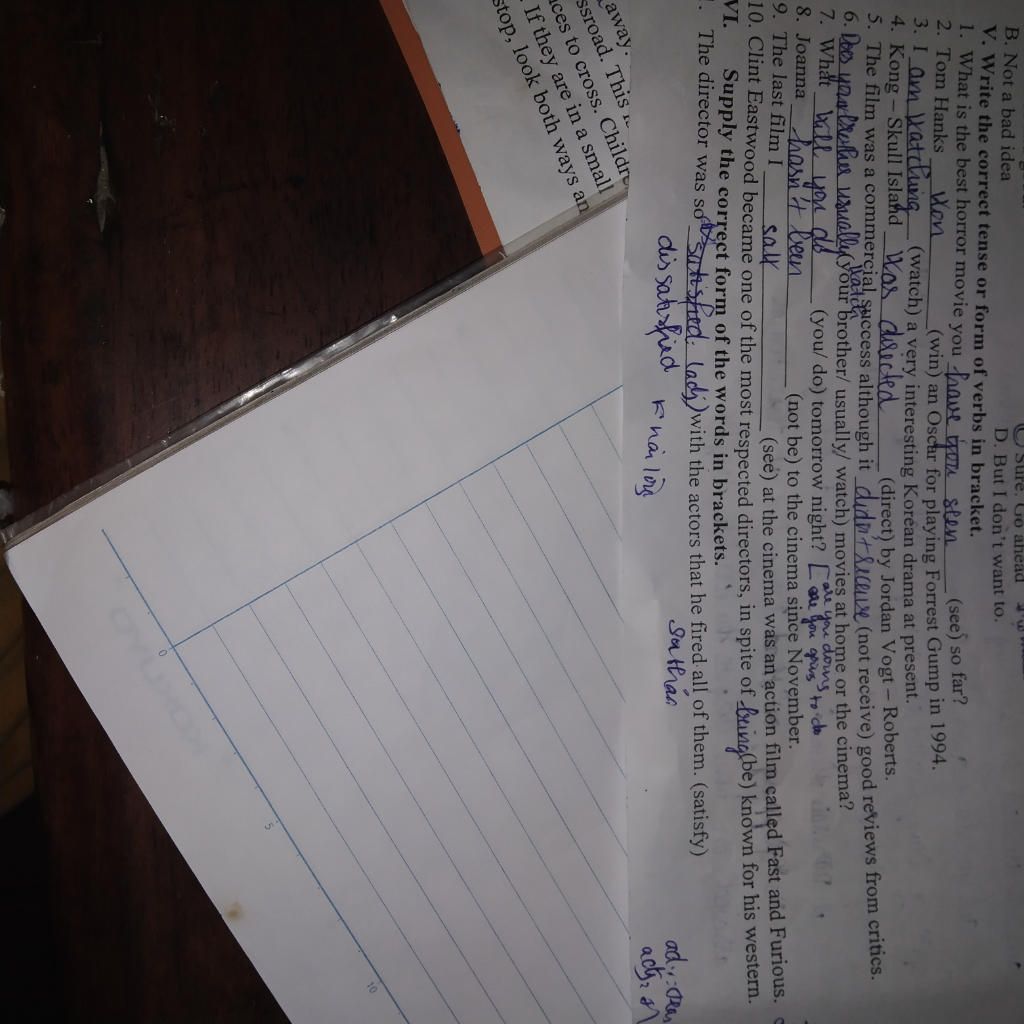 Sure. Go ahead
B. Not a bad idea D. But I don't want to.
V. Write the correct tense or form of verbs in bracket.
1. What is the best horror movie you have you seen (see) so far?
2. Tom Hanks Won (win) an Oscar for playing Forrest Gump in 1994.
3. I am watching (watch) a very interesting Korean drama at present.
4. Kong – Skull Island was directed (direct) by Jordan Vogt – Roberts.
5. The film was a commercial success although it didn't receive (not receive) good reviews from critics.
6. Does your brother usually watch (your brother/ usually/ watch) movies at home or the cinema?
7. What will you do (you/ do) tomorrow night? [ are you doing
are you going to do
8. Joanna hasn't been (not be) to the cinema since November.
9. The last film I saw (see) at the cinema was an action film called Fast and Furious.
10. Clint Eastwood became one of the most respected directors, in spite of being (be) known for his western.
VI. Supply the correct form of the words in brackets.
The director was so satisfied (adj) with the actors that he fired all of them. (satisfy)
dissatisfied
away. This
ssroad.
ces to cross. Childr
If they are in a small
stop, look both ways an
0
5
10